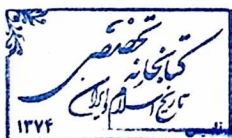 کتابخانه تخصصی
تاریخ اسلام و ایران
۱۳۷۴